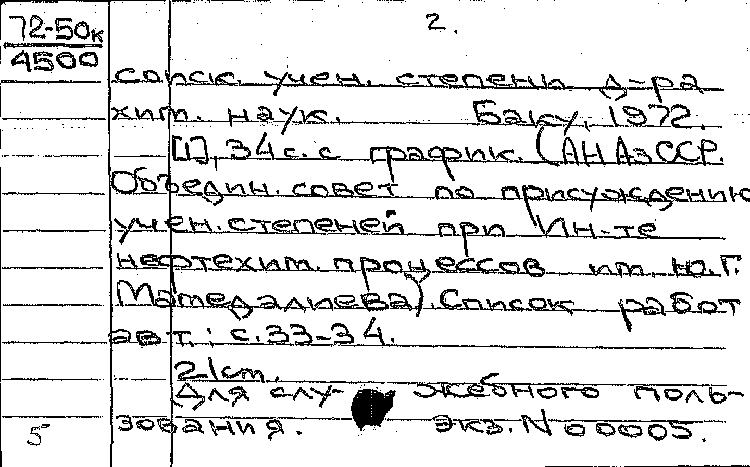 2.
72-50к
4500
соиск. учен. степени д-ра
хим. наук. Баку, 1972.
[1], 34 с. с график. (АН АзССР.
Объедин. совет по присуждению
учен. степеней при Ин-те
нефтехим. процессов им. Ю.Г.
Мамедалиева). Список работ
авт.: с. 33-34.
21 см.
Для слу- жебного поль-
зования. Экз. N 00005.
5